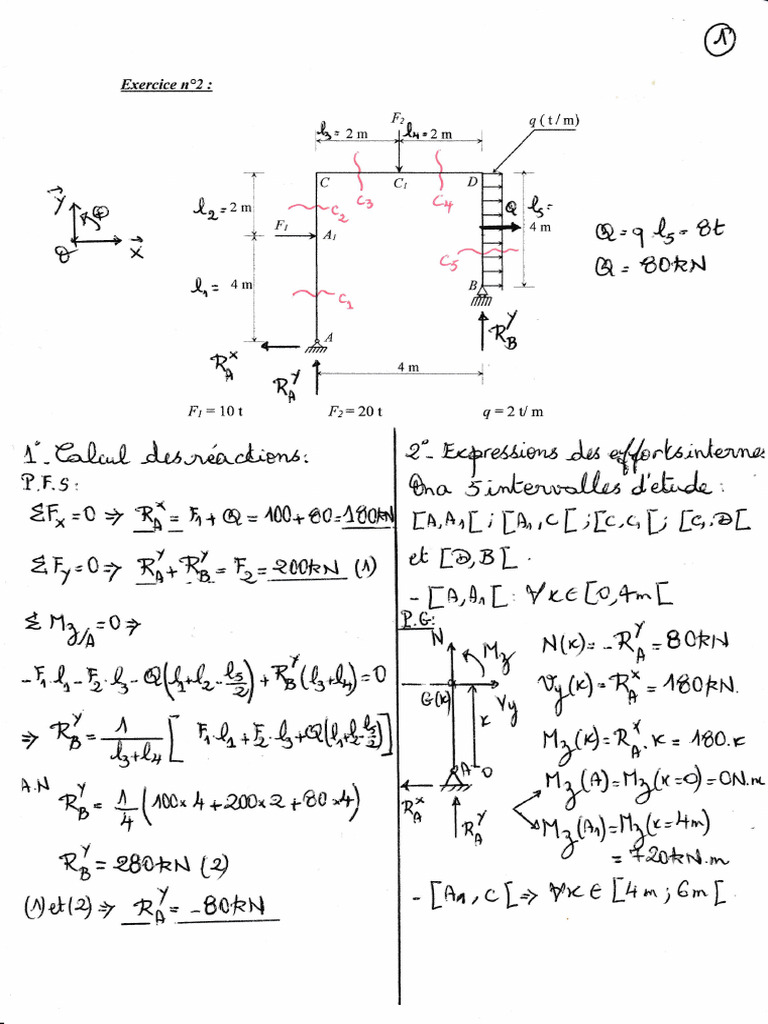 1
Exercice n°2 :
F2
l3= 2 m
l4= 2 m
q ( t / m)
C
C1
D
C3
C4
l2= 2 m
C2
F1
A1
Q
l5= 4 m
C5
B
l1= 4 m
C1
A
R_A^x
R_A^y
R_B^y
4 m
y
x
Q = q l5 = 8t
Q = 80kN
F1 = 10 t
F2 = 20 t
q = 2 t/ m
1°- Calcul des réactions:
P.F.S:
ΣFx=0 ⇒ R_A^x = F1 + Q = 100+80=180kN
ΣFy=0 ⇒ R_A^y + R_B^y = F2 = 200kN (1)
ΣMz/A=0 ⇒
-F1·l1-F2·l3-Q(l1+l2-l5/2)+R_B^y(l3+l4)=0
⇒ R_B^y = 1/(l3+l4) [F1·l1+F2·l3+Q(l1+l2-l5/2)]
A.N
R_B^y = 1/4 (100×4+200×2+80×4)
R_B^y = 280kN (2)
(1) et (2) ⇒ R_A^y = -80kN
2°- Expressions des efforts internes
On a 5 intervalles d'étude:
[A,A1[ ; [A1,C[ ; [C,C1[ ; [C1,D[
et [D,B[.
- [A,A1[ : ∀x∈[0,4m[
P.G:
N
Mz
G(x)
Vy
x
A
0
R_A^x
R_A^y
N(x) = -R_A^y = 80kN
Vy(x) = R_A^x = 180kN.
Mz(x) = R_A^x.x = 180.x
Mz(A)=Mz(x=0)=0N.m
Mz(A1)=Mz(x=4m)
= 720kN.m
- [A1,C[ ⇒ ∀x∈[4m;6m[